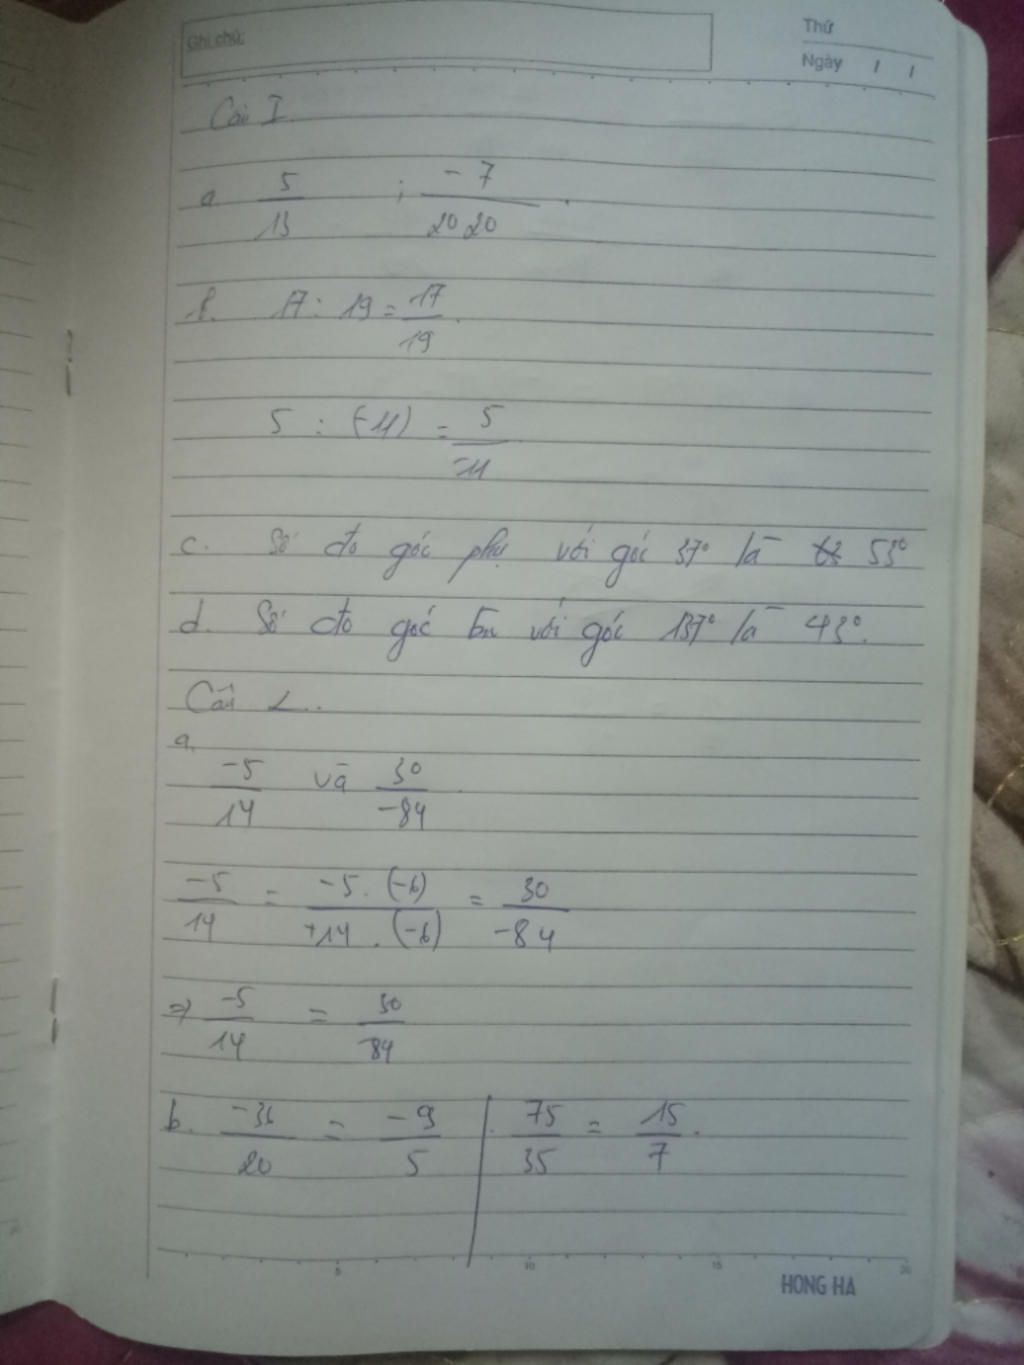 Ghi chú:
Thứ
Ngày / /
Câu I
a 5/13 ; -7/2020.
b. 17 : 19 = 17/19.
5 : (-11) = 5/-11
c. Số đo góc phụ với góc 37° là 53°
d. Số đo góc bù với góc 137° là 43°.
Câu 2.
a.
-5/14 và 30/-84.
-5/14 = -5.(-6)/+14.(-6) = 30/-84
=> -5/14 = 30/-84
b. -36/20 = -9/5 | 75/35 = 15/7.
5 10 15 20
HONG HA